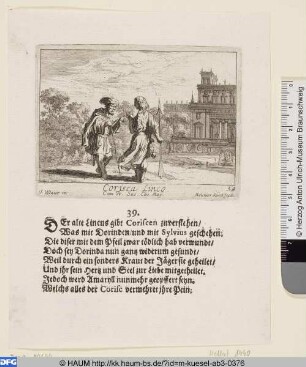 Corisca Linco
39.
DEr alte Lincus gibt Coriscen zuverstehen/
Was mit Dorinden und mit Sylvius geschehen;
Die diser mit dem Pfeil zwar tödlich hab verwundt/
Doch sey Dorinda nun gantz widerum gesund/
Weil durch ein sonders Kraut der Jäger sie geheilet/
Und ihr sein Hertz und Seel zur Liebe mitgetheilet.
Jedoch werd Amaryll nunmehr geopffert seyn,
Welchs alles der Corisc vermehret jhre Pein;
© Herzog Anton Ulrich-Museum Braunschweig
DFG
© HAUM http://kk.haum-bs.de/?id=m-kuesel-ab3-0376